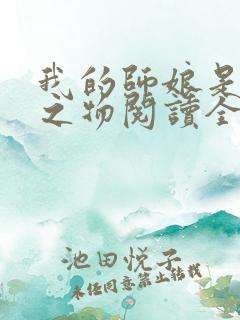 我的師娘是
之物閱讀全
池田悦子
未经同意禁止转载